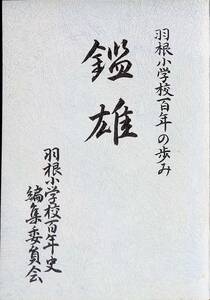 羽根小学校百年の歩み
鑑雄
羽根小学校百年史
編集委員会